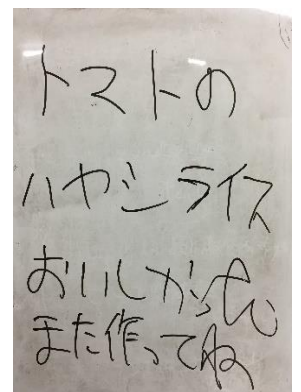 トマトの
ハヤシライス
おいしかったむ
また作ってね